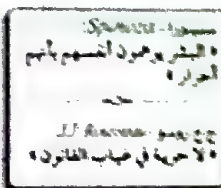 سبينوزا - Spinoza:
« البشر يوهمون أنفسهم بأنهم
أحرار »
ج.ج.روسو - J.J Rousseau:
« لا حرية في غياب القانون »